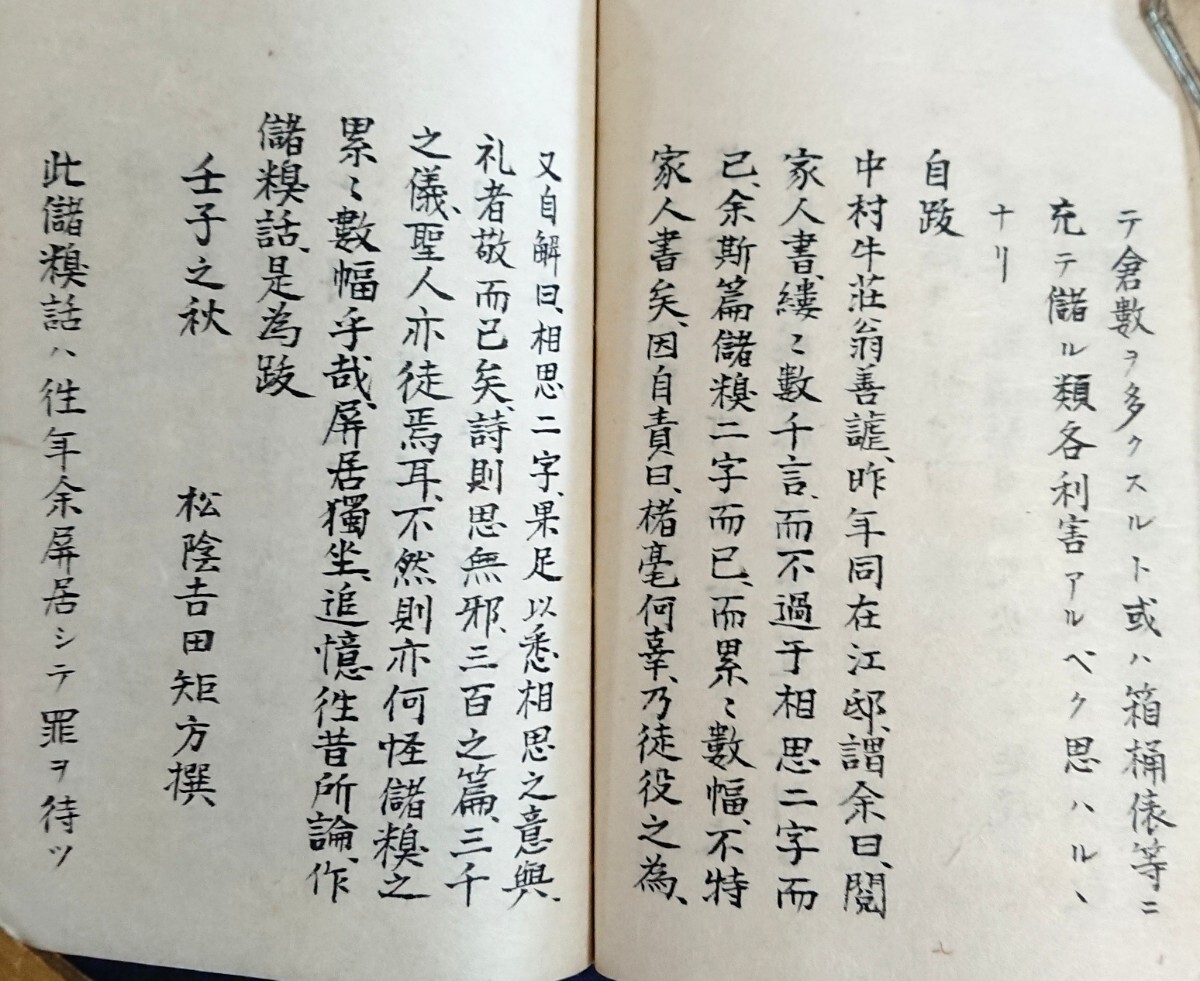 テ倉數ヲ多クスルト或ハ箱桶俵等ニ
充テ儲ル類各利害アルベク思ハルヽ
ナリ
自跋
中村牛莊翁善謔、昨年同在江邸、謂余曰、閱
家人書、縷〻數千言、而不過于相思二字而
已、余斯篇儲糗二字而已、而累〻數幅、不特
家人書矣、因自責曰、楮毫何辜、乃徒役之為、
又自解曰、相思二字、果足以悉相思之意與、
礼者敬而已矣、詩則思無邪、三百之篇、三千
之儀、聖人亦徒焉耳、不然則亦何怪儲糗之
累〻數幅乎哉、屏居獨坐、追憶徃昔所論、作
儲糗話、是為跋
壬子之秋　　松陰吉田矩方撰
此儲糗話ハ徃年余屏居シテ罪ヲ待ツ